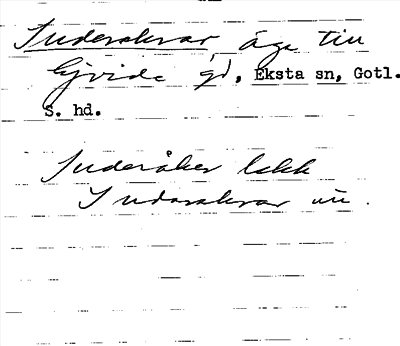 Inderakrar äga till
Gjvide gd, Eksta sn, Gotl.
S. hd.
Inderåker lekk
Indarakrar